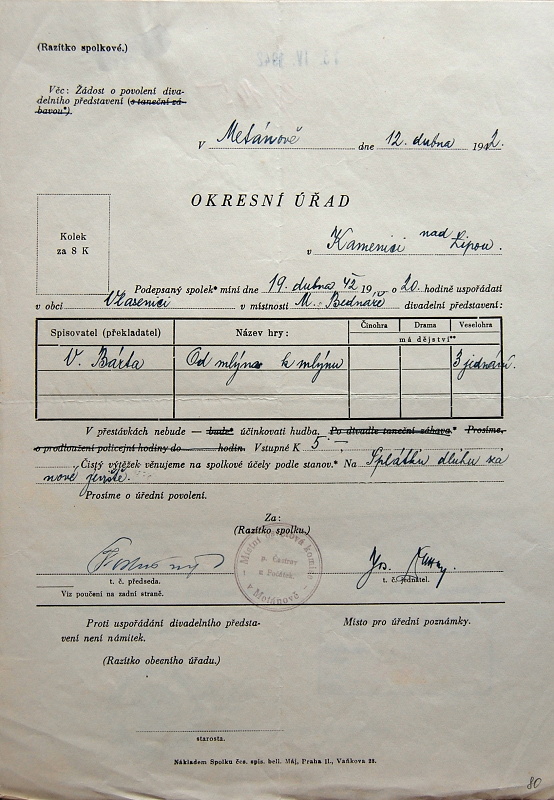 (Razítko spolkové.)
Věc: Žádost o povolení diva-
delního představení (o taneční zá-
bavou*).
V Metánově dne 12. dubna 1942.
OKRESNÍ ÚŘAD
Kolek
za 8 K
v Kamenici nad Lipou.
Podepsaný spolek* míní dne 19. dubna 42 19 o 20 hodině uspořádati
v obci Vlasenici v místnosti M. Bednáře divadelní představení:
Spisovatel (překladatel) Název hry: Činohra Drama Veselohra
má dějství**
V. Bárta Od mlýna k mlýnu 3 jednání.
V přestávkách nebude — bude* účinkovati hudba. Po divadle taneční zábava.* Prosíme,
o prodloužení policejní hodiny do hodin. Vstupné K 5.—,
Čistý výtěžek věnujeme na spolkové účely podle stanov.* Na Splátku dluhu za
nové jeviště.
Prosíme o úřední povolení.
Za:
(Razítko spolku:)
Místní komise
v Metánově
Jos.
t. č. předseda. t. č. jednatel.
Viz poučení na zadní straně.
Proti uspořádání divadelního předsta-
vení není námitek.
Místo pro úřední poznámky.
(Razítko obecního úřadu.)
starosta.
Nákladem Spolku čes. spis. bell. Máj, Praha II., Vaňkova 28.
80